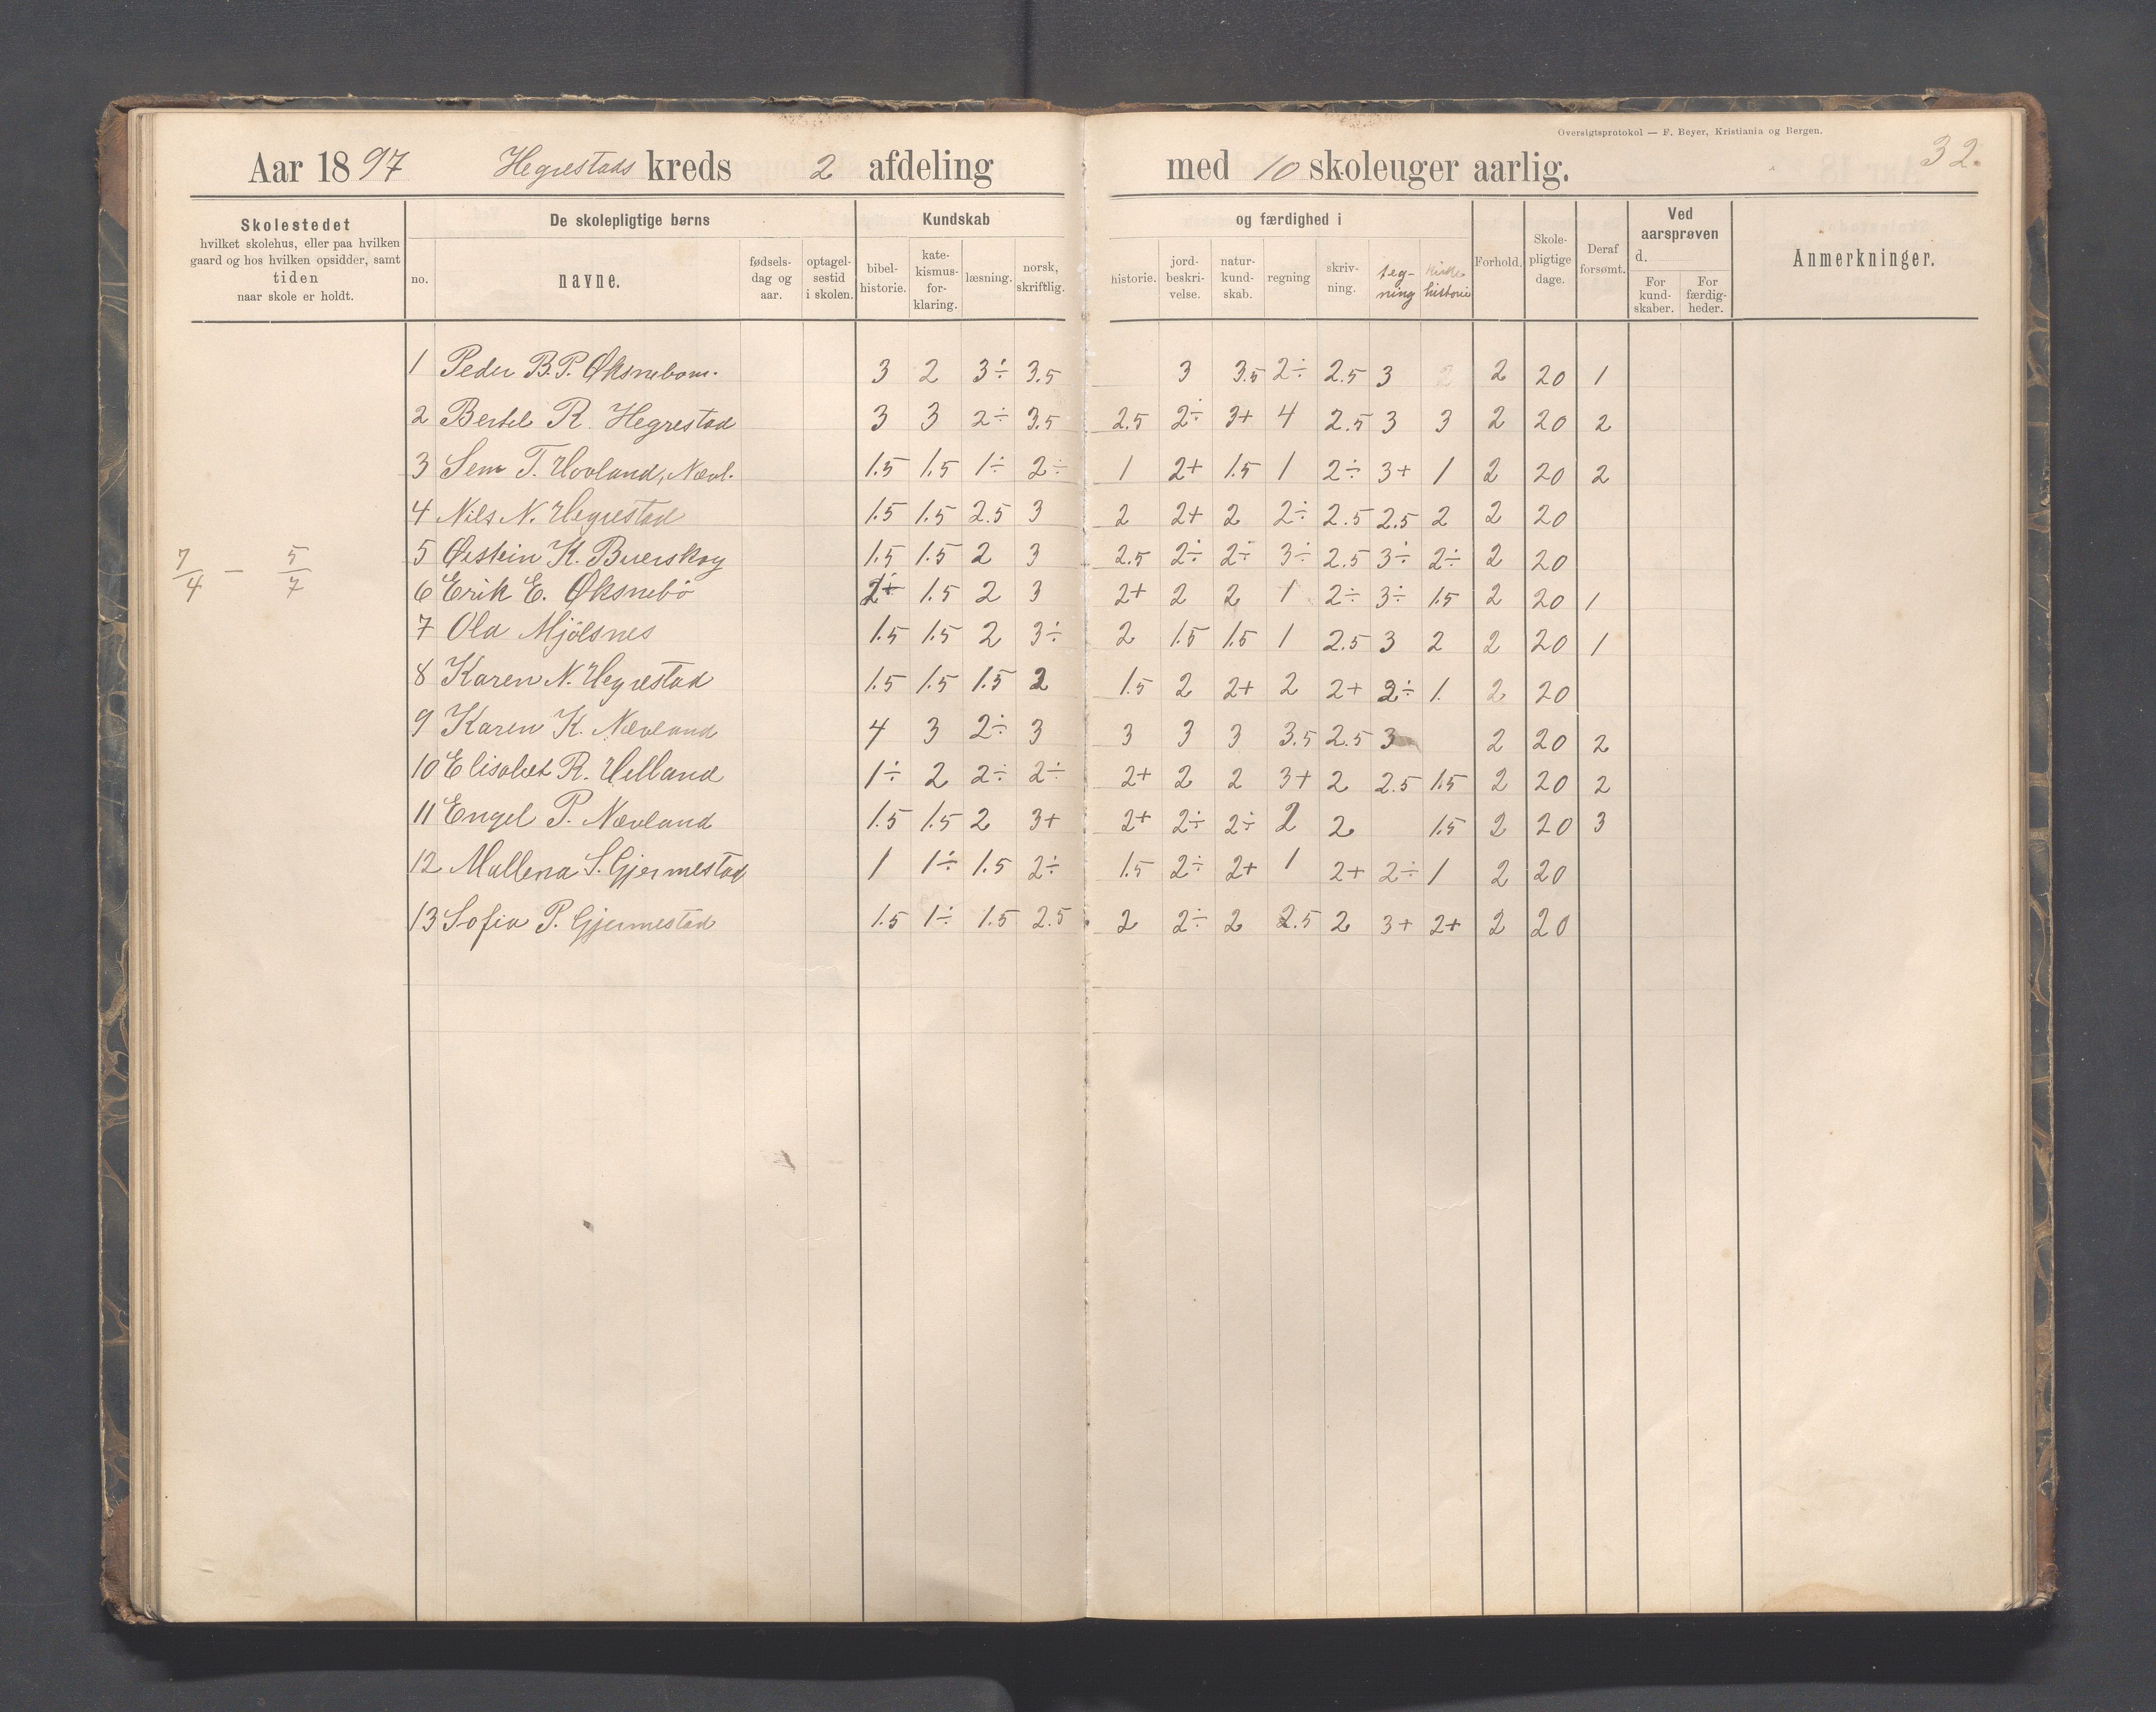 Oversigtsprotokol — F. Beyer, Kristiania og Bergen.
32.
Aar 1897 Hegrestads kreds 2 afdeling med 10 skoleuger aarlig.
Skolestedet hvilket skolehus, eller paa hvilken gaard og hos hvilken opsidder, samt tiden naar skole er holdt.
De skolepligtige børns
no. navne. fødsels-dag og aar. optagel-sestid i skolen.
Kundskab og færdighed i
bibel-historie. kate-kismus-for-klaring. læsning. norsk, skriftlig. historie. jord-beskri-velse. natur-kund-skab. regning skriv-ning. teg-ning kirke historie
Forhold. Skole-pligtige dage. Deraf forsømt.
Ved aarsprøven d. For kund-skaber. For færdig-heder.
Anmerkninger.
1 Peder B.P. Øksnebom. 3 2 3÷ 3.5 3 3.5 2÷ 2.5 3 2 2 20 1
2 Bertel R. Hegrestad 3 3 2÷ 3.5 2.5 2÷ 3+ 4 2.5 3 3 2 20 2
3 Sem T. Hovland, Nævl. 1.5 1.5 1÷ 2÷ 1 2+ 1.5 1 2÷ 3+ 1 2 20 2
4 Nils N. Hegrestad 1.5 1.5 2.5 3 2 2+ 2 2÷ 2.5 2.5 2 2 20
7/4 — 5/7
5 Østein K. Buerskog 1.5 1.5 2 3 2.5 2÷ 2÷ 3÷ 2.5 3÷ 2÷ 2 20
6 Erik E. Øksnebö 2+ 1.5 2 3 2+ 2 2 1 2÷ 3÷ 1.5 2 20 1
7 Ola Mjölsnes 1.5 1.5 2 3÷ 2 1.5 1.5 1 2.5 3 2 2 20 1
8 Karen N. Hegrestad 1.5 1.5 1.5 2 1.5 2 2+ 2 2+ 2÷ 1. 2 20
9 Karen K. Nævland 4 3 2÷ 3 3 3 3 3.5 2.5 3 2 20 2
10 Elisabet R. Helland 1÷ 2 2÷ 2÷ 2+ 2 2 3+ 2 2.5 1.5 2 20 2
11 Engel P. Nævland 1.5 1.5 2 3+ 2+ 2÷ 2÷ 2 2 1.5 2 20 3
12 Mallena S. Gjermestad 1 1÷ 1.5 2÷ 1.5 2÷ 2+ 1 2+ 2÷ 1 2 20
13 Sofia P. Gjermestad 1.5 1÷ 1.5 2.5 2 2÷ 2 2.5 2 3+ 2+ 2 20